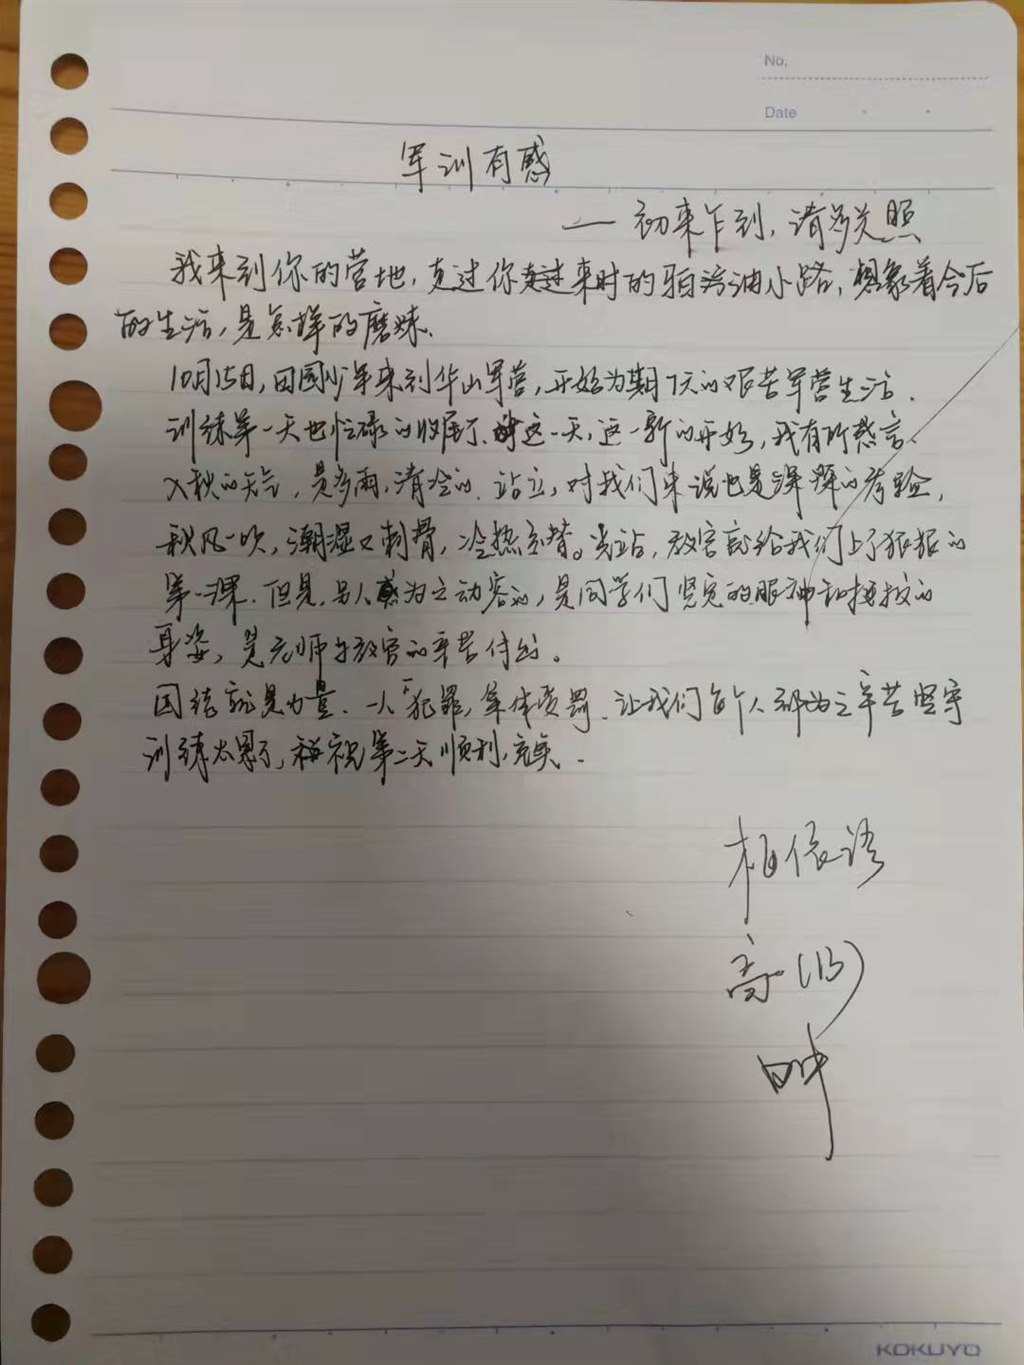 No.
Date
军训有感
——初来乍到,请多关照
我来到你的营地,走过你走过来时的柏油小路,想象着今后
的生活,是怎样的磨炼.
10月15日,田园少年来到华山军营,开始为期7天的艰苦军营生活.
训练第一天也忙碌的收尾了.这一天,这一新的开始,我有所感言.
入秋的天气,是多雨,清冷的.站立,对我们来说也是深深的考验,
秋风一吹,潮湿又刺骨,冷热交替。光站,教官就给我们上了狠狠的
第一课.但是,另人为之动容的,是同学们坚定的眼神和挺拔的
身姿,是老师与教官的辛苦付出。
团结就是力量.一人"犯罪,集体责罚.让我们每个人都为之辛苦坚守
训练太累了,祝第二天顺利,充实.
相依语
高(13)
KOKUYO